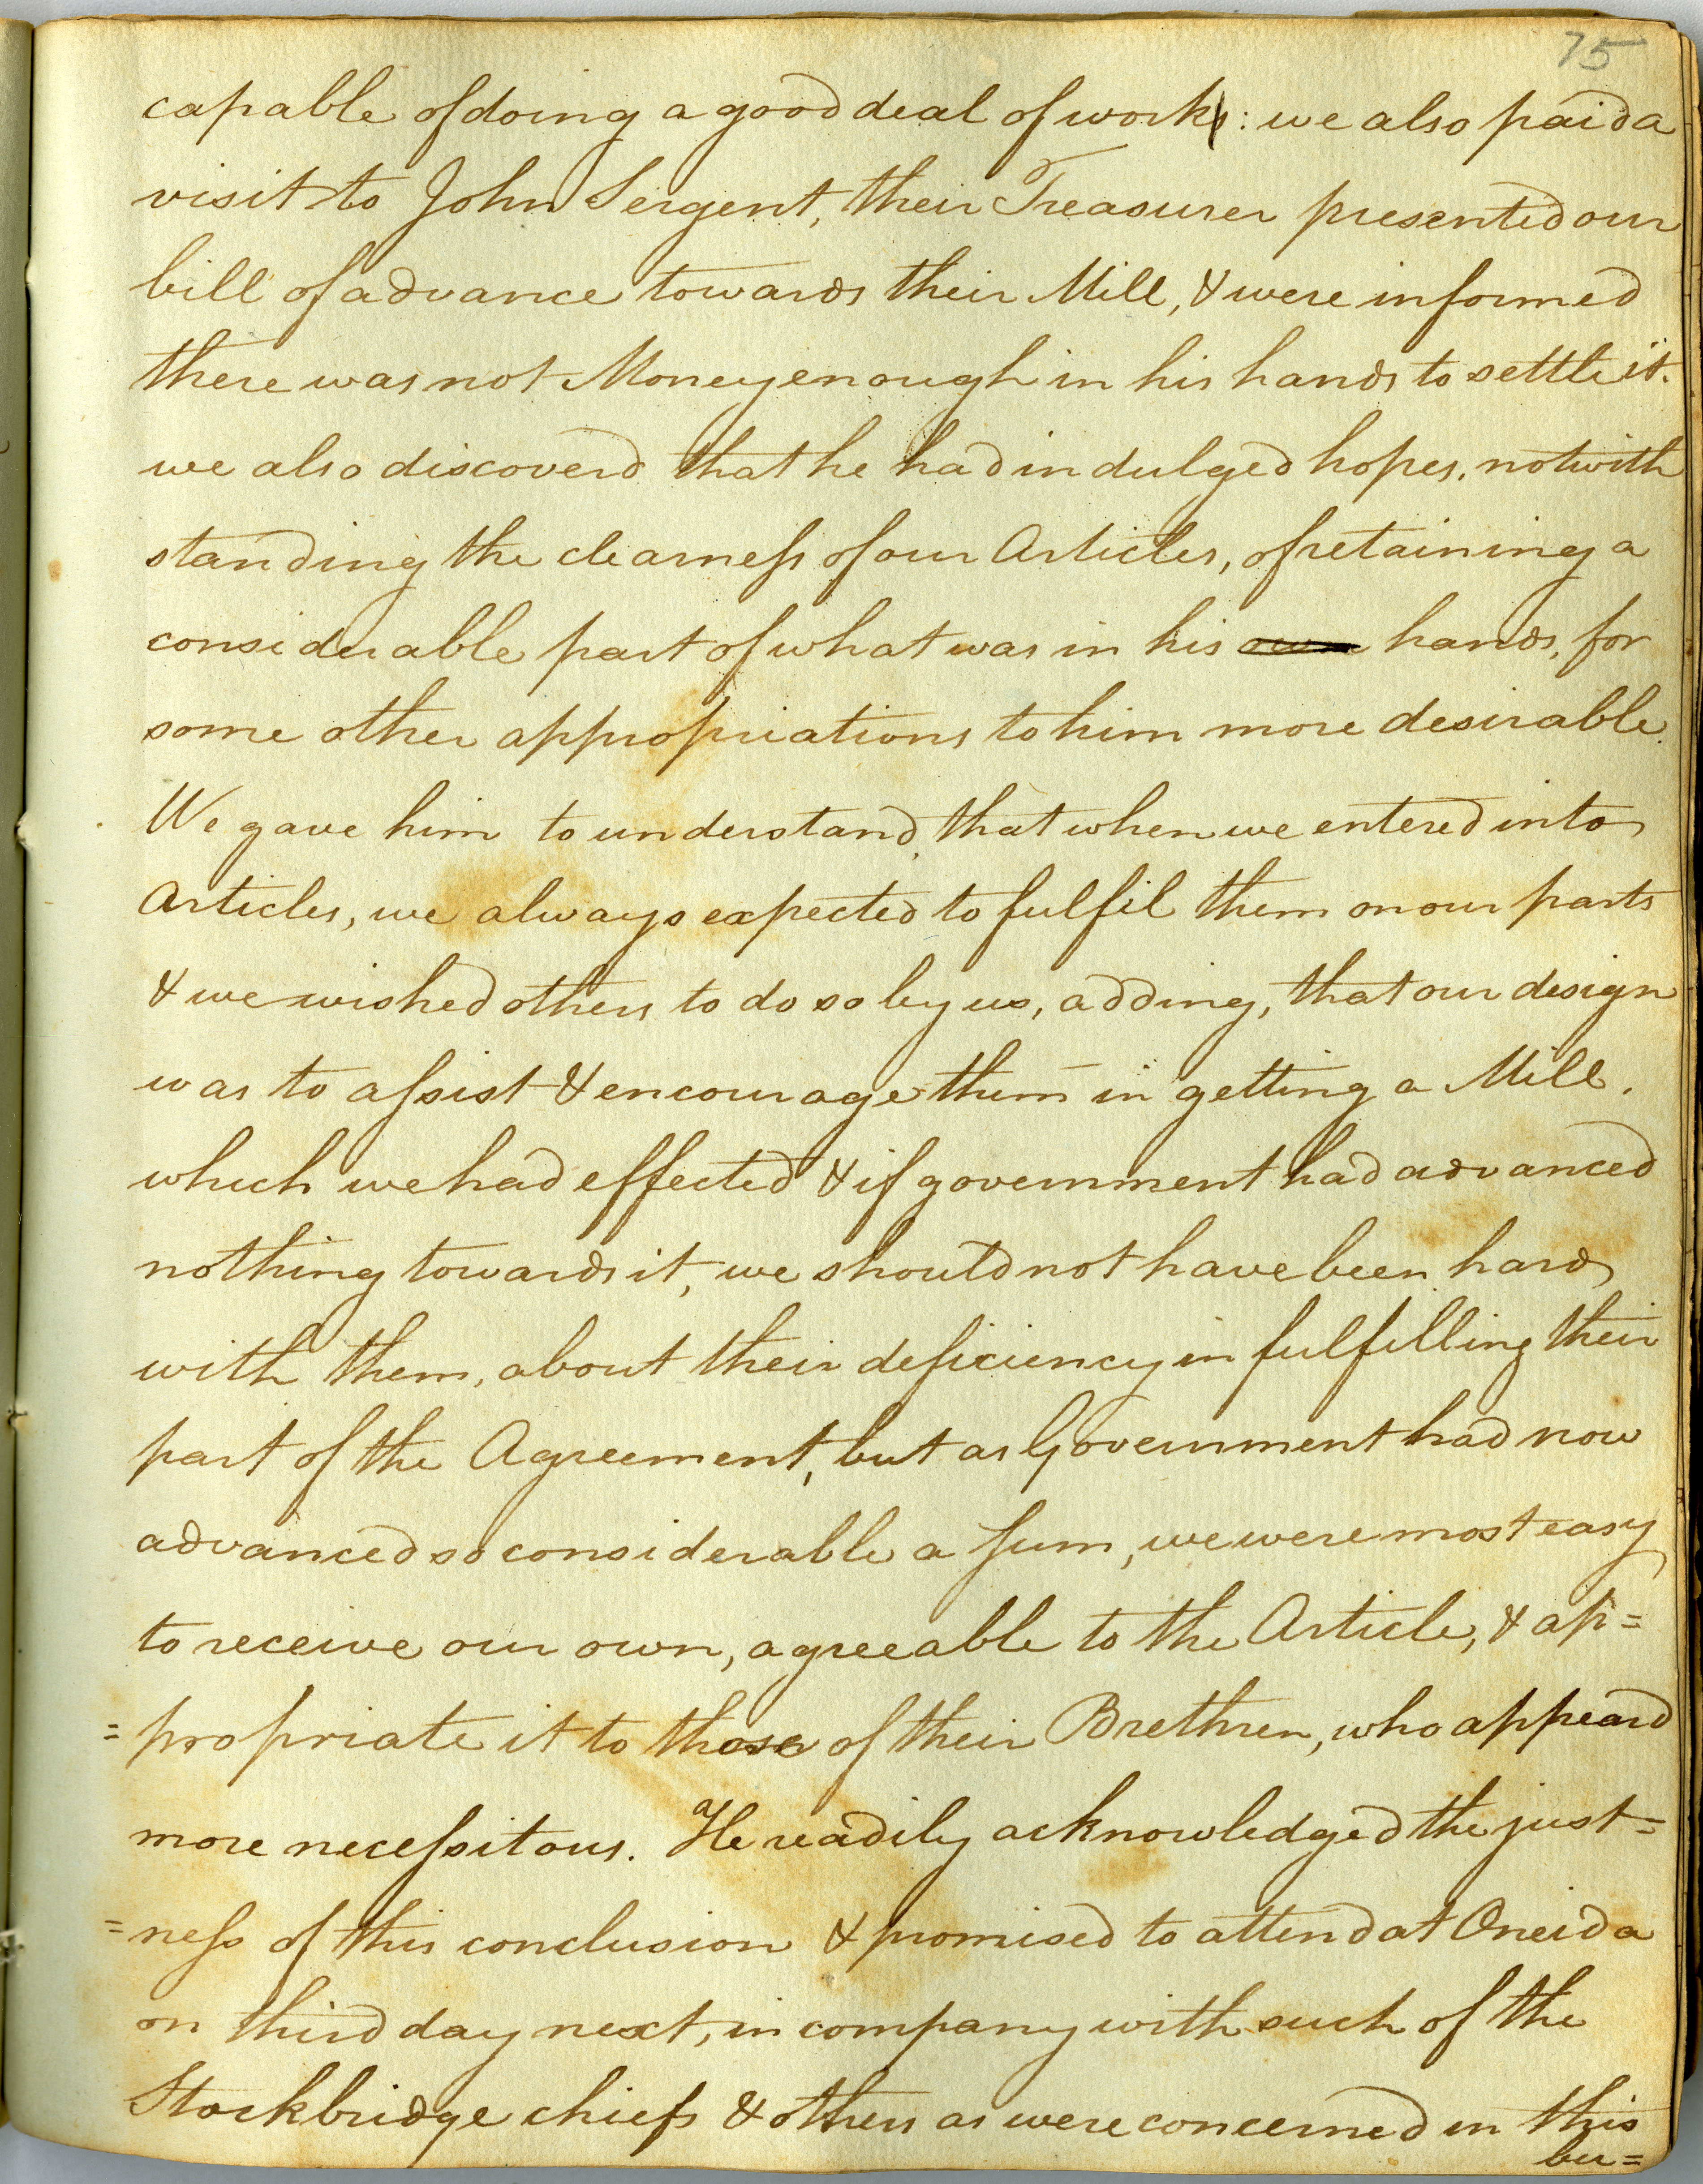 75
capable of doing a good deal of work: we also paid a
visit to John Sergent, their Treasurer presented our
bill of advance towards their Mill, & were informed
there was not Money enough in his hands to settle it.
we also discoverd that he had indulged hopes, notwith
standing the clearness of our Articles, of retaining a
considerable part of what was in his own hands, for
some other appropriations to him more desirable.
We gave him to understand, that when we entered into
Articles, we always expected to fulfil them on our parts
& we wished others to do so by us, adding, that our design
was to assist & encourage them in getting a Mill.
which we had effected & if government had advanced
nothing towards it, we should not have been hard
with them, about their deficiency in fulfilling their
part of the Agreement, but as Government had now
advanced so considerable a sum, we were most easy
to receive our own, agreeable to the Article, & ap=
=propriate it to those of their Brethren, who appeard
more necessitous. He readily acknowledged the just=
=ness of this conclusion & promised to attend at Oneida
on third day next, in company with such of the
Stockbridge chiefs & others as were concerned in this
bu=